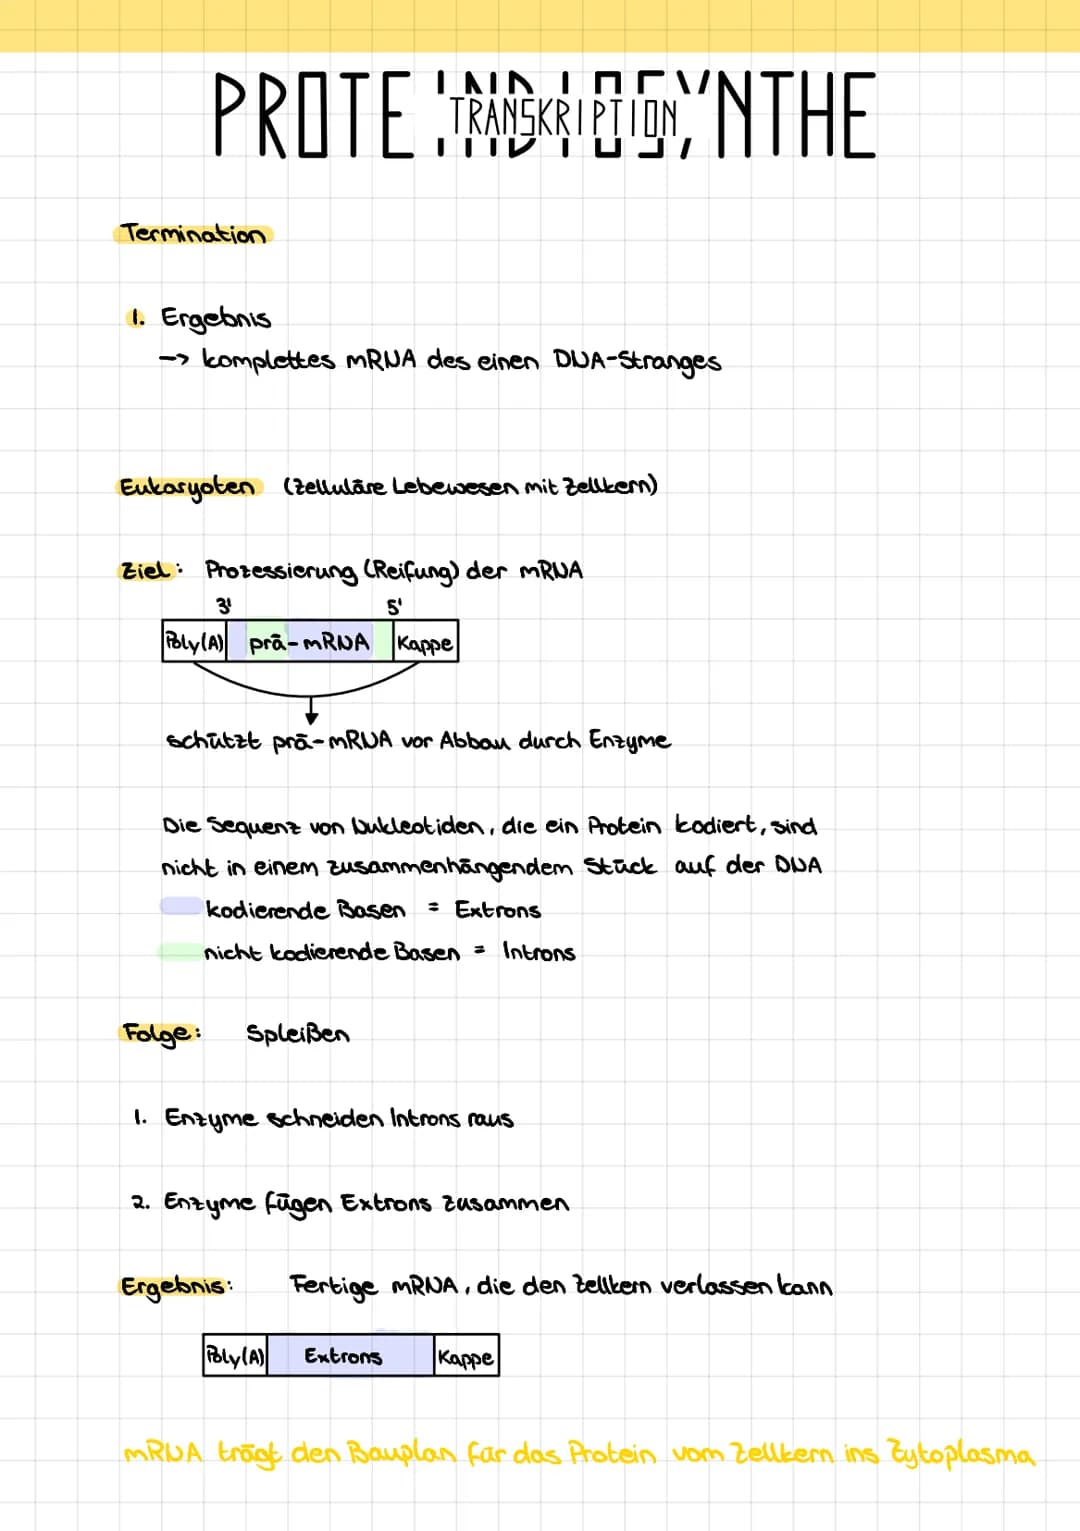 PROTEINBIOSYNTHE
TRANSKRIPTION
Termination
1. Ergebnis
-> komplettes mRNA des einen DNA-Stranges
Eukaryoten (zelluläre Lebewesen mit Zellkern)
Ziel: Prozessierung (Reifung) der mRNA
3' 5'
Poly(A) prä-mRNA Kappe
schützt prä-mRNA vor Abbau durch Enzyme
Die Sequenz von Nukleotiden, die ein Protein kodiert, sind
nicht in einem zusammenhängendem Stück auf der DNA
kodierende Basen = Extrons
nicht kodierende Basen = Introns
Folge: Spleißen
1. Enzyme schneiden Introns raus
2. Enzyme fügen Extrons zusammen
Ergebnis: Fertige mRNA, die den Zellkern verlassen kann
Poly(A) Extrons Kappe
mRNA trägt den Bauplan für das Protein vom Zellkern ins Zytoplasma